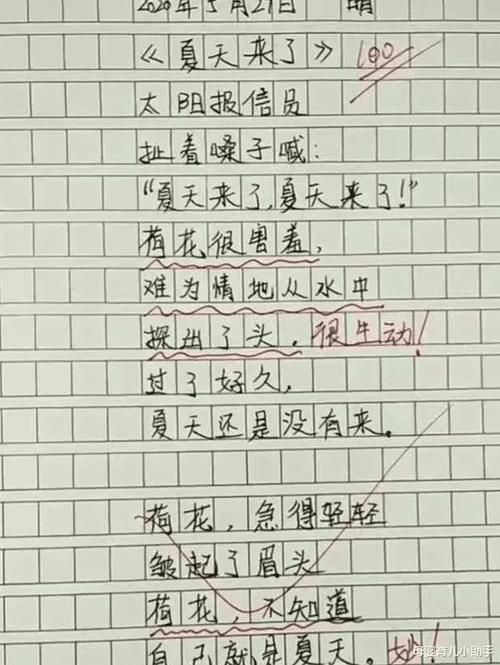 2020年5月29日 晴
《夏天来了》 100
太阳报信员
扯着嗓子喊：
“夏天来了，夏天来了！”
荷花很害羞，
难为情地从水中
探出了头。很生动！
过了好久，
夏天还是没有来。
荷花，急得轻轻
皱起了眉头
荷花，不知道
自己就是夏天。妙！
母婴育儿小助手